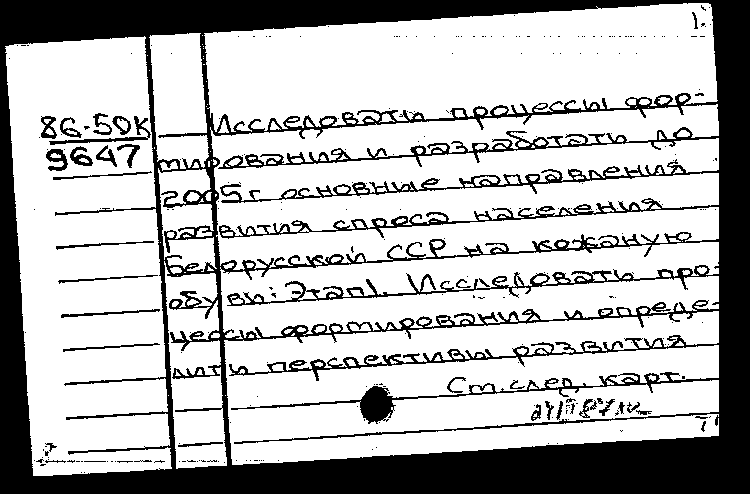 1.
86-5DK Исследовать процессы фор-
9647 мирования и разработать до
2005 г. основные направления
развития спроса населения
Белорусской ССР на кожаную
обуви: Этап 1. Исследовать про-
цессы формирования и опреде-
лить перспективы развития
См. след. карт.